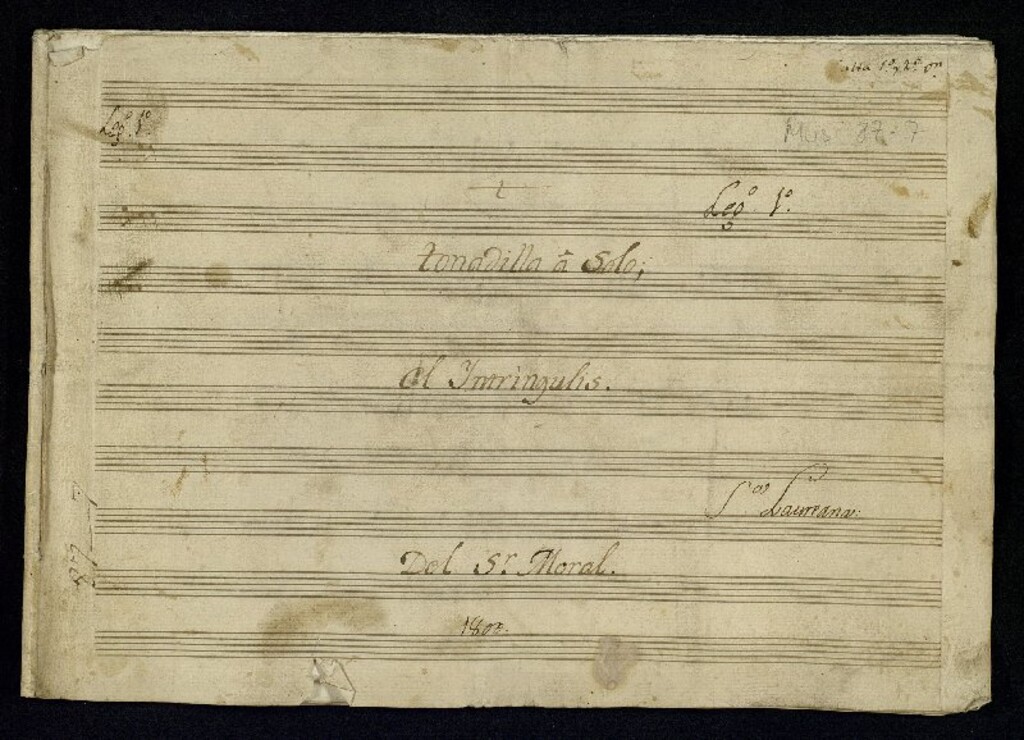 Leg.º 1º
Mus 87-7
Leg.º 1º.
tonadilla â Solo;
el Intringulis.
S.ra Laureana:
Del S.r Moral.